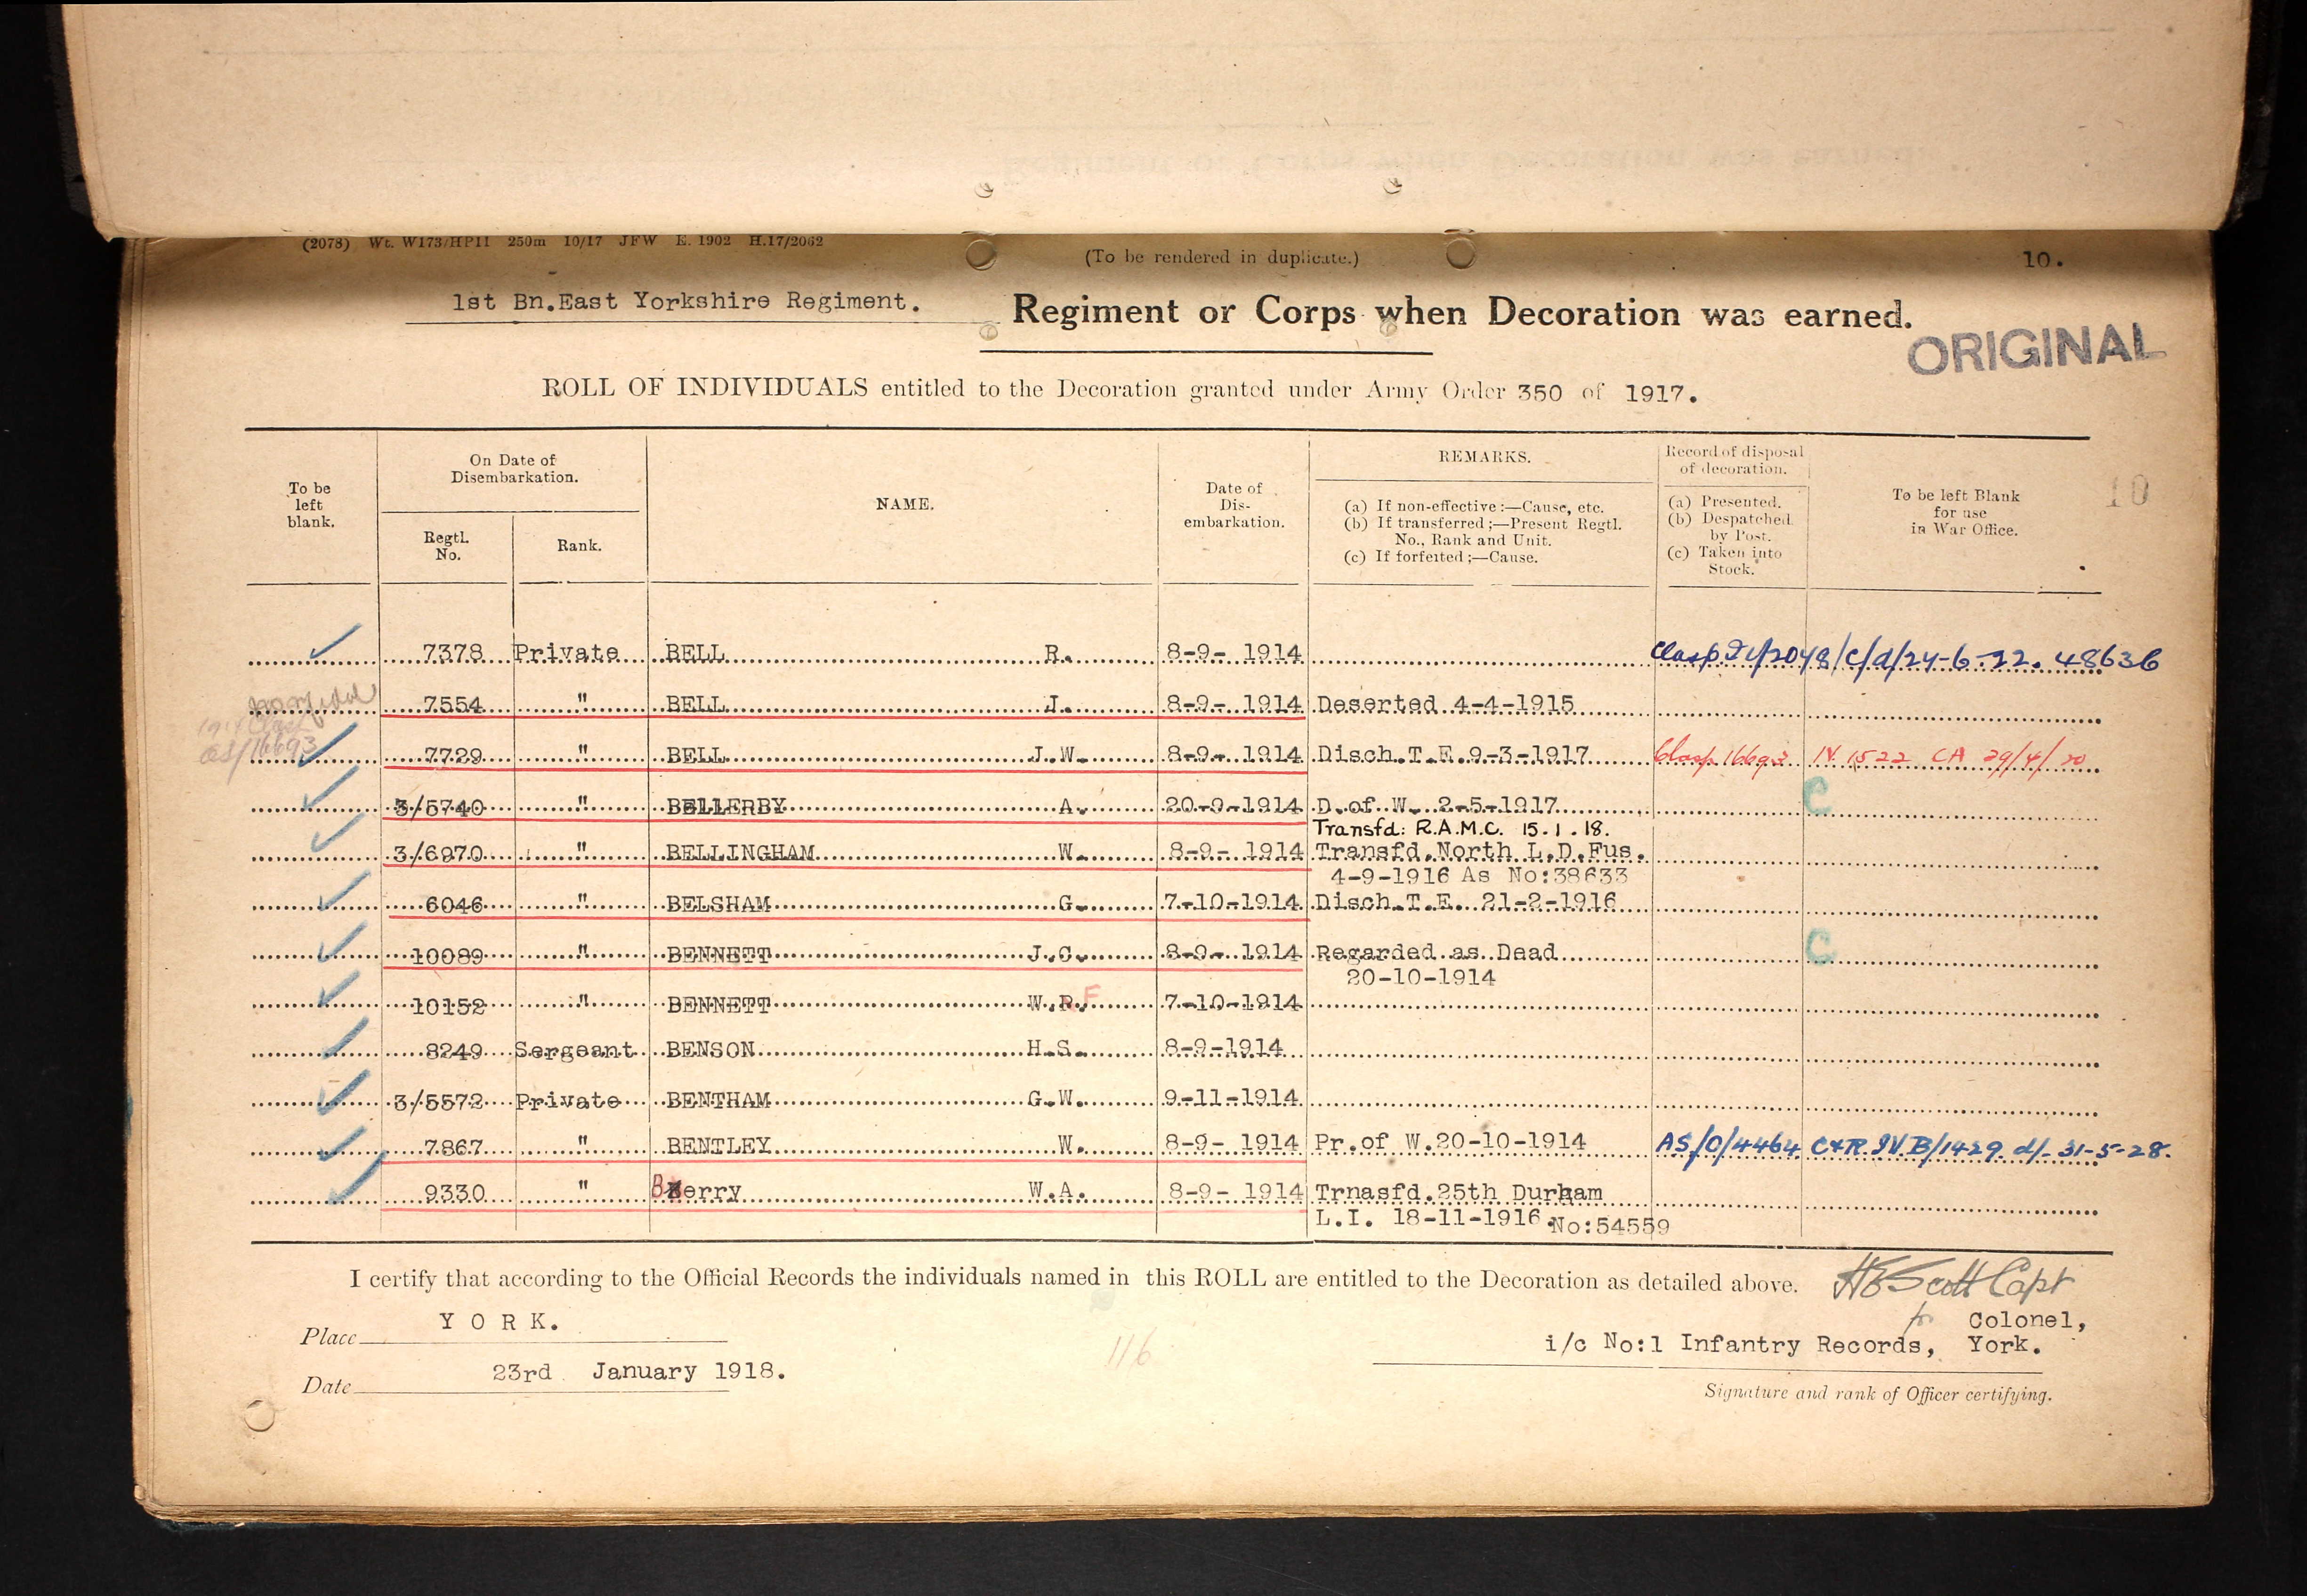 (2078) Wt. W173/HP11 250m 10/17 JFW E. 1902 H.17/2062
(To be rendered in duplicate.)
10.
1st Bn.East Yorkshire Regiment. Regiment or Corps when Decoration was earned.
ORIGINAL
ROLL OF INDIVIDUALS entitled to the Decoration granted under Army Order 350 of 1917.
To be left blank.
On Date of Disembarkation.
Regtl. No.
Rank.
NAME.
Date of Dis-embarkation.
REMARKS.
(a) If non-effective:—Cause, etc.
(b) If transferred;—Present Regtl. No., Rank and Unit.
(c) If forfeited;—Cause.
Record of disposal of decoration.
(a) Presented.
(b) Despatched by Post.
(c) Taken into Stock.
To be left Blank for use in War Office.
10
7378 Private BELL R. 8-9- 1914 Clasp 2048/C/d/24-6-22. 48636
7554 " BELL J. 8-9- 1914 Deserted 4-4-1915
1914 Clasp
as/16693
7729 " BELL J.W. 8-9- 1914 Disch.T.E.9-3-1917 Clasp 16693 IV 1522 CA 29/4/20
3/5740 " BELLERBY A. 20-9-1914 D.of W. 2-5-1917 C
Transfd: R.A.M.C. 15.1.18.
3/6970 " BELLINGHAM W. 8-9- 1914 Transfd.North L.D.Fus.
4-9-1916 As No:38633
6046 " BELSHAM G. 7-10-1914 Disch.T.E. 21-2-1916
10089 " BENNETT J.C. 8-9- 1914 Regarded as Dead C
20-10-1914
10152 " BENNETT W.R. F 7-10-1914
8249 Sergeant BENSON H.S. 8-9-1914
3/5572 Private BENTHAM G.W. 9-11-1914
7867 " BENTLEY W. 8-9- 1914 Pr.of W.20-10-1914 AS/O/4464 C&R.IV.B/1429 d/- 31-5-28.
9330 " Berry W.A. 8-9- 1914 Trnasfd.25th Durham
L.I. 18-11-1916.No:54559
I certify that according to the Official Records the individuals named in this ROLL are entitled to the Decoration as detailed above. H E Scott Capt
for Colonel,
Place YORK.
i/c No:1 Infantry Records, York.
116
Date 23rd January 1918.
Signature and rank of Officer certifying.